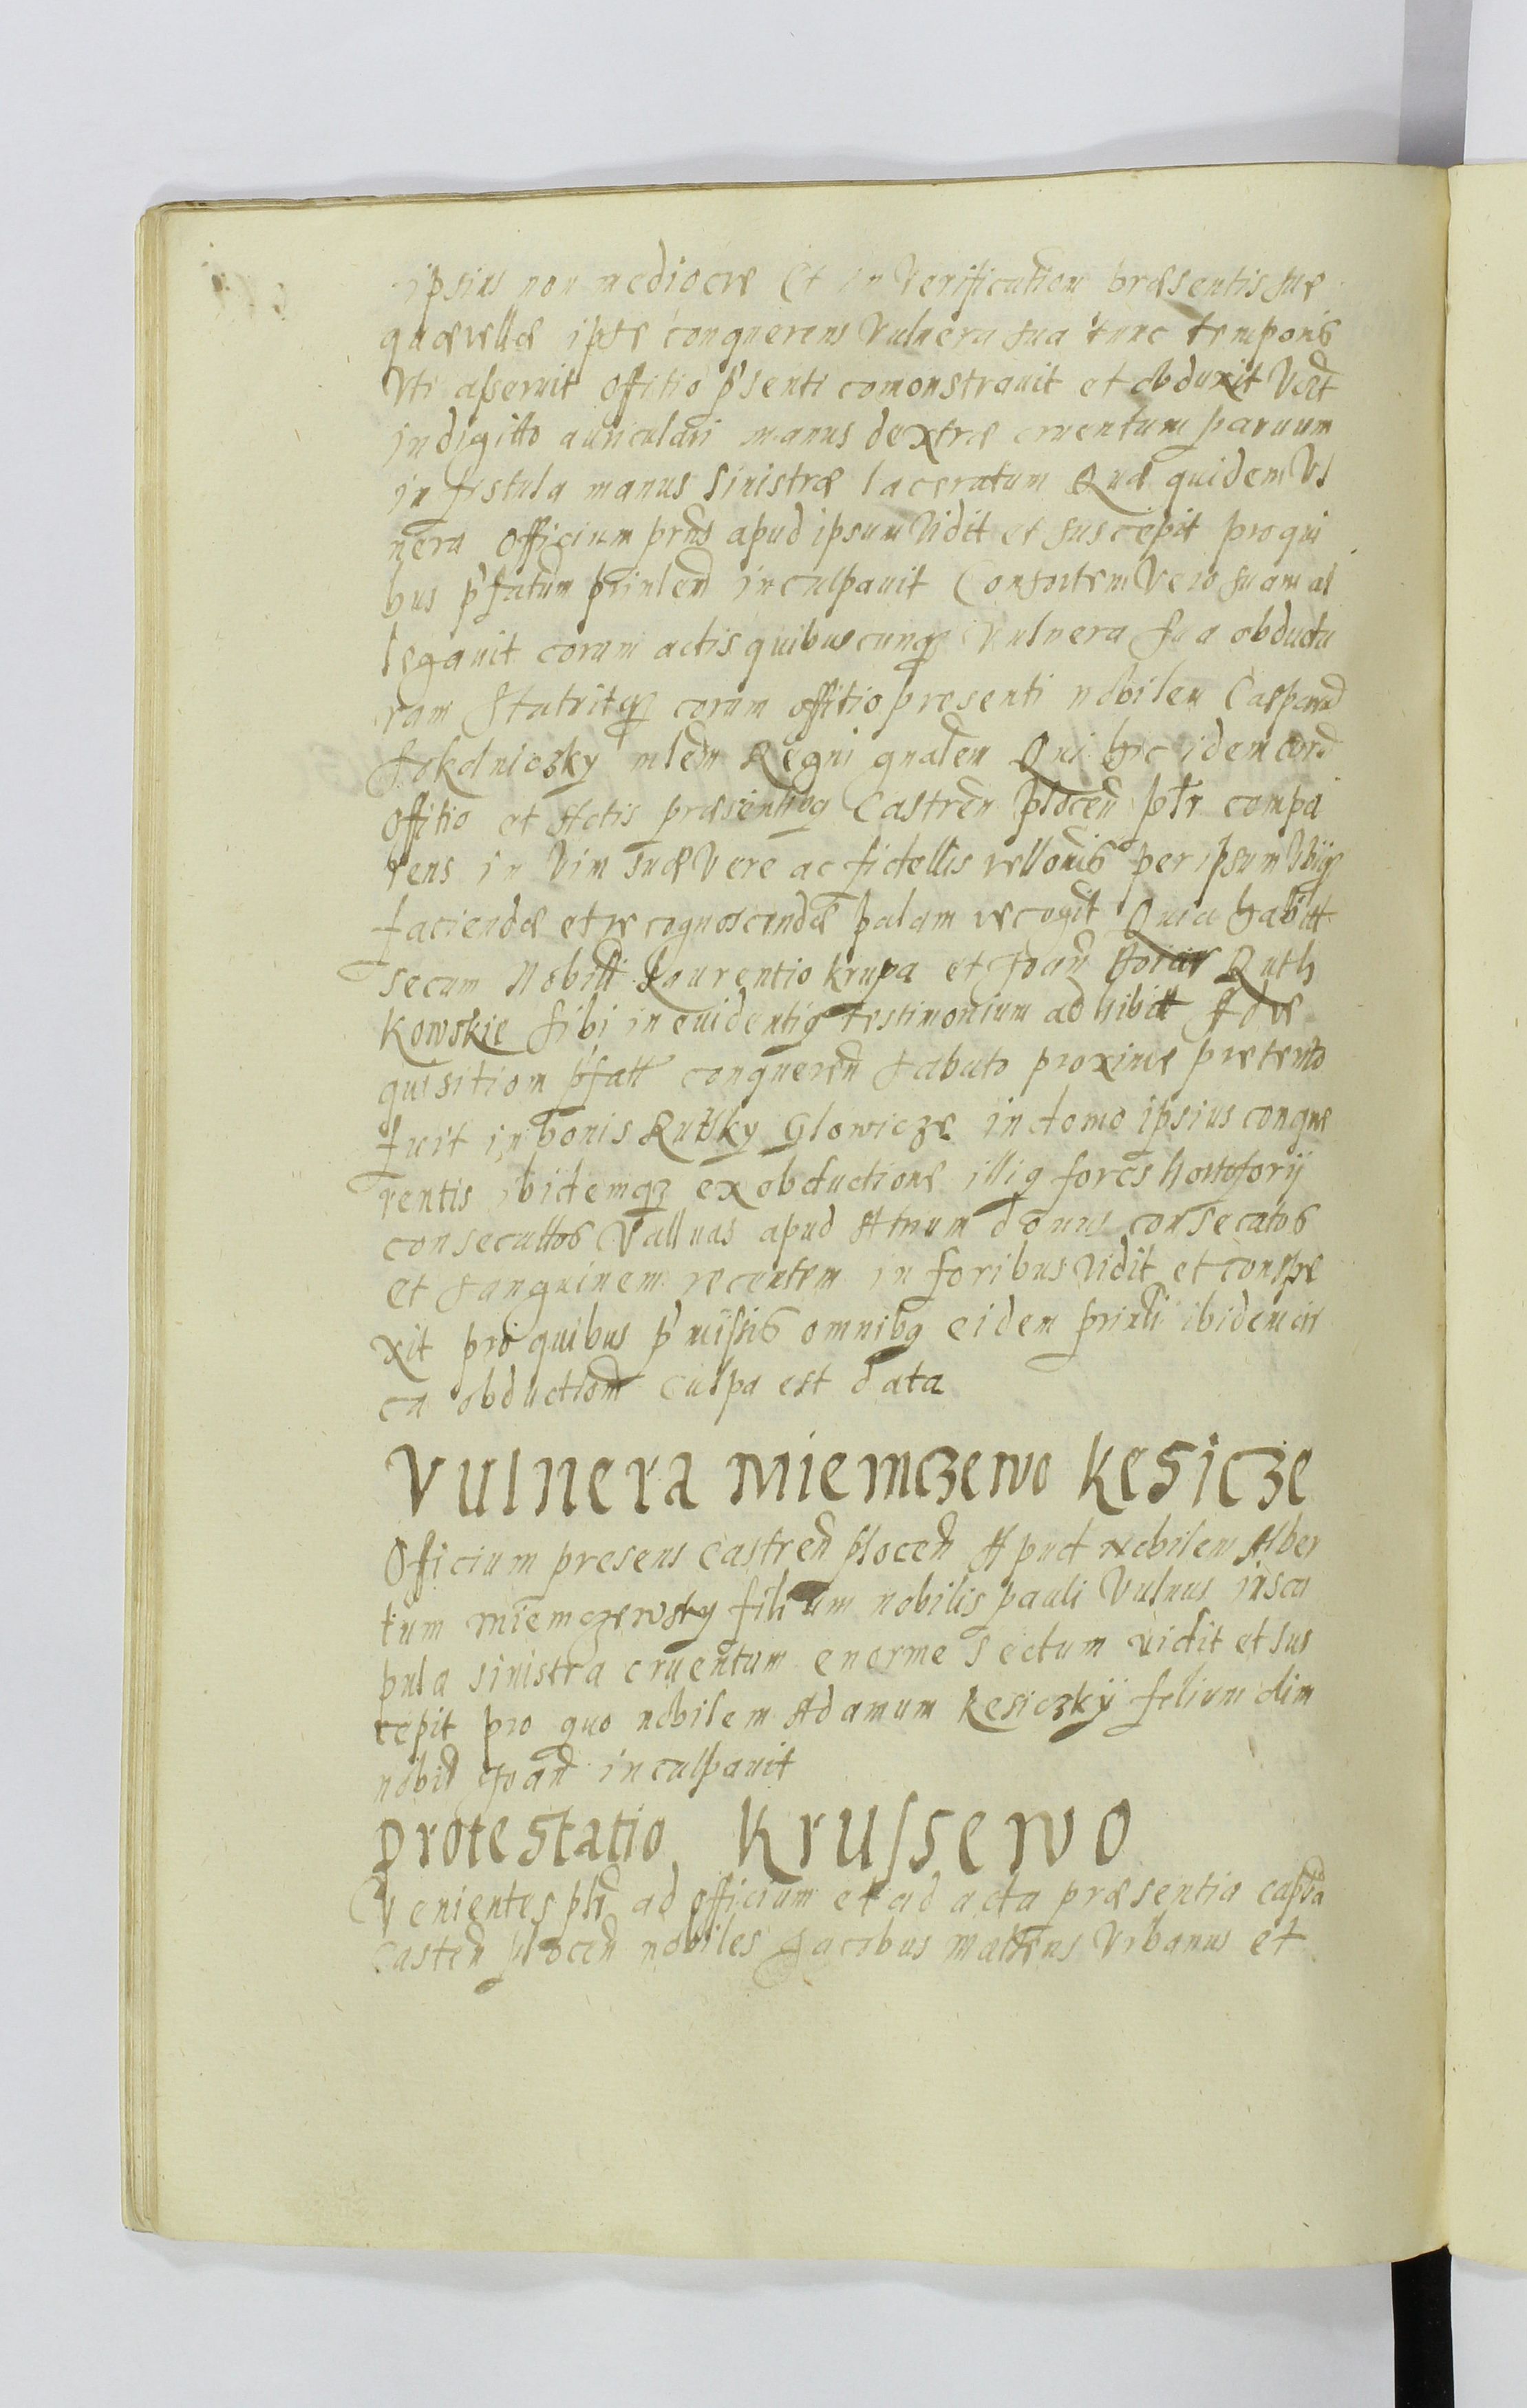 ipsius non mediocre Et in Verificationem præsentis suæ
quærellæ ipse conquerens Vulnera sua tunc temporis
Vti asseruit Offitio p̃senti comonstrauit et obduxit Vidt
in digitto auriculari manus dextræ cruentum paruum
in fistula manus Sinistræ laceratum Quæ quidem Vl
nera Officium prñs apud ipsum Vidit et suscepit pro qui
bus p̃fatum prinlem inculpauit Consortem Vero suam al
legauit coram actis quibuscunqꝫ Vulnera sua obductu
ram Statuitqꝫ coram offitio presenti nobilem Casparum
Sokolniczky mlem Regni gnalem Qui hic idem coram
Offitio et Actis præsentibꝫ Castren̄ plocen̄ pl̃r compa
rens in Vim suæ Vere ac fidellis rellonis per ipsum Vbiqꝫ
faciendæ et recognoscendæ palam recogit Quia habitt
secum Nobill Laurentio Krupa et Joan̄ Ruth
kowskie sibi in euidentiꝫ testimonium ad hibitt Ad re
quisitiom p̃fatt conqueren̄ sabato proxime preterito
fuit in bonis Rutsky Glowicze in domo ipsius conque
rentis ibidemqꝫ ex obductione illiꝫ fores
consecuttos Valluas apud Atrium domus consecatos
et sanguinem recentem in foribus Vidit et conspe
xit pro quibus p̃missis omnibꝫ eidem prinli ibidem cir
ca obductiom culpa est data
Vulnera Miemczewo Kesicze
Officium presens Castren̄ plocen̄ Apud Nobilem Alber
tum Miemczewsky filium nobilis pauli Vulnus in sca
pula sinistra cruentum enorme sectum vidit et sus
cepit pro quo nobilem Adamum Kesiczky filium olim
nobil Joan̄ inculpauit
Protestatio Krussewo
Venientes pl̃r ad officium et ad acta præsentia capta
casten̄ plocen̄ nobiles Jacobus Matheus Vrbanus et